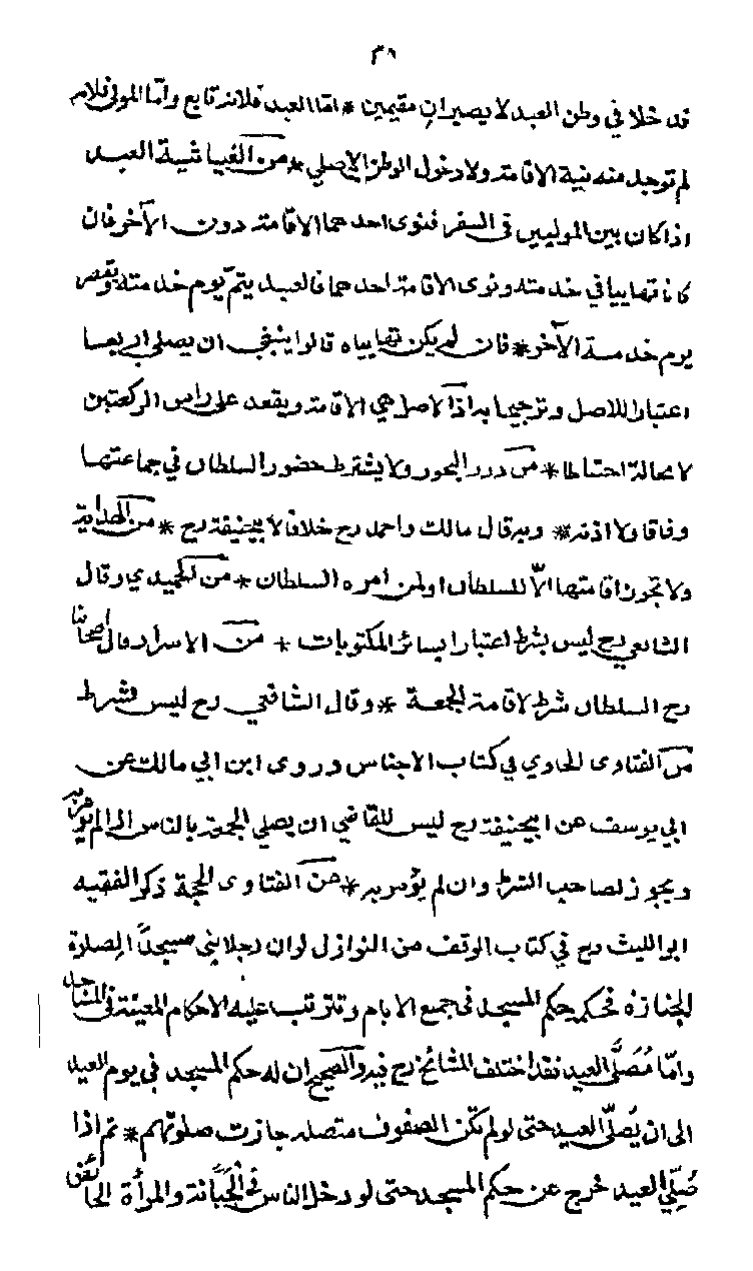 ٣٩
قد خلا في وطن العبد لا يصيران مقيمين * اما العبد فلانه تابع واما المولى فلانه
لم توجد منه نية الاقامة ولا دخول الوطن الاصلي * من الغياثية العبد
اذا كان بين الموليين في السفر فنوى احدهما الاقامة دون الآخر فان
كانا تهاييا في خدمته ونوى الاقامة احدهما فالعبد يتم يوم خدمته ويقصر
يوم خدمة الآخر * فان لم يكن تهاييا قالوا ينبغي ان يصلي اربعا
اعتبارا للاصل وترجيحا به اذ الاصل هي الاقامة ويقعد على راس الركعتين
لا محالة احتياطا * من درر البحور ولا يشترط حضور السلطان في جماعتها
وفاقا ولا اذنه * وبه قال مالك واحمد رح خلافا لابيحنيفة رح * من الهداية
ولا تجوز اقامتها الّا للسلطان اولمن امره السلطان * من الحميدي وقال
الشافعي رح ليس بشرط اعتبارا بسائر المكتوبات * من الاسرار وقال اصحابنا
رح السلطان شرط لاقامة الجمعة * وقال الشافعي رح ليس بشرط
من الفتاوى الحاوي في كتاب الاجناس وروى ابن ابي مالك عن
ابي يوسف عن ابيحنيفة رح ليس للقاضي ان يصلي الجمعة بالناس اذا لم يؤمر به
ويجوز لصاحب الشرط وان لم يؤمر به * من الفتاوى الحجة ذكر الفقيه
ابو الليث رح في كتاب الوقف من النوازل لو ان رجلا بنى مسجدًا لصلوة
الجنازة فحكمه حكم المسجد في جميع الايام وتترتب عليه الاحكام المعينة في المساجد
وامّا مُصَلَّى العيد فقد اختلف المشائخ رح فيه والصحيح ان له حكم المسجد في يوم العيد
الى ان يُصلّى العيد حتى لو لم تكن الصفوف متصلة جازت صلوتهم * ثم اذا
صُلِّي العيد خرج عن حكم المسجد حتى لو دخل الناس في الجَبَّانة والمرأة الحائض